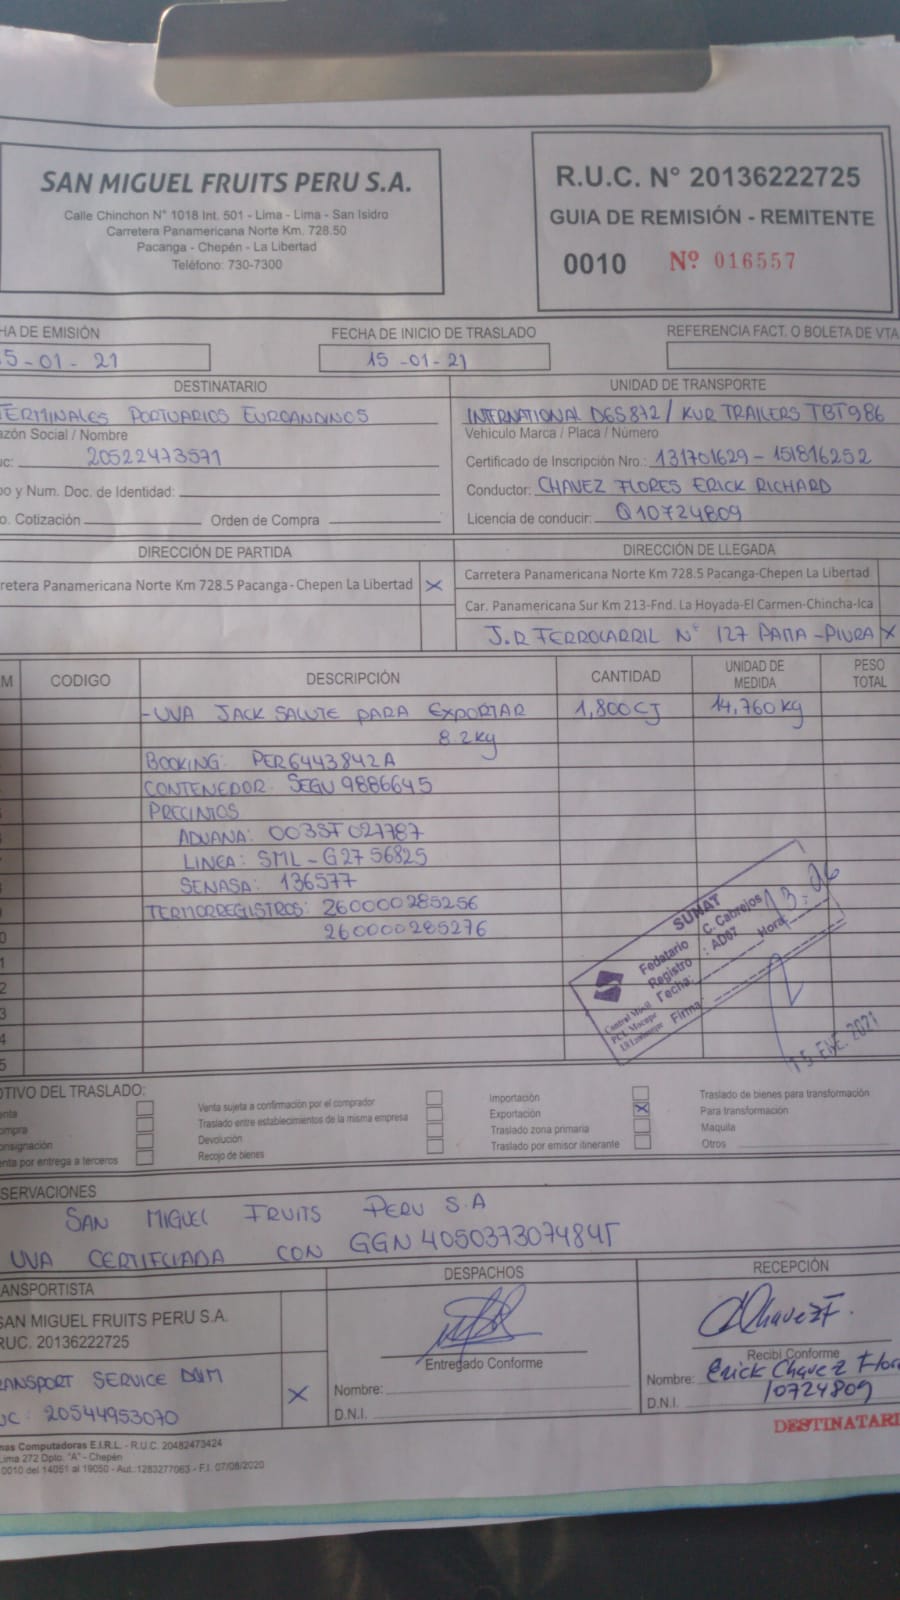 SAN MIGUEL FRUITS PERU S.A.
Calle Chinchon N° 1018 Int. 501 - Lima - Lima - San Isidro
Carretera Panamericana Norte Km. 728.50
Pacanga - Chepén - La Libertad
Teléfono: 730-7300
R.U.C. N° 20136222725
GUIA DE REMISIÓN - REMITENTE
0010 Nº 016557
HA DE EMISIÓN
5-01-21
FECHA DE INICIO DE TRASLADO
15-01-21
REFERENCIA FACT. O BOLETA DE VTA
DESTINATARIO
TERMINALES PORTUARIOS EUROANDINOS
azón Social / Nombre
uc: 20522473571
po y Num. Doc. de Identidad:
o. Cotización Orden de Compra
UNIDAD DE TRANSPORTE
INTERNATIONAL D6S872 / KUR TRAILERS TBT986
Vehículo Marca / Placa / Número
Certificado de Inscripción Nro.: 131701629 - 151816252
Conductor: CHAVEZ FLORES ERICK RICHARD
Licencia de conducir: Q10724809
DIRECCIÓN DE PARTIDA
retera Panamericana Norte Km 728.5 Pacanga-Chepen La Libertad X
DIRECCIÓN DE LLEGADA
Carretera Panamericana Norte Km 728.5 Pacanga-Chepen La Libertad
Car. Panamericana Sur Km 213-Fnd. La Hoyada-El Carmen-Chincha-Ica
J.R FERROCARRIL N° 127 PAITA - PIURA X
M CODIGO DESCRIPCIÓN CANTIDAD UNIDAD DE MEDIDA PESO TOTAL
-UVA JACK SALUTE PARA EXPORTAR 1,800 CJ 14,760 kg
8.2kg
BOOKING: PER6443842A
CONTENEDOR: SEGU 9886645
PRECINTOS
ADUANA: 003ST021787
LINEA: SML-G2756825
SENASA: 136577
TERMORREGISTROS: 260000285256
260000285276
0
1
2
3
4
5
SUNAT
Fedatario C. Cabrejos
Registro : AD07
Fecha: Hora
Firma:
15 ENE. 2021
OTIVO DEL TRASLADO:
enta
ompra
onsignación
enta por entrega a terceros
Venta sujeta a confirmación por el comprador
Traslado entre establecimientos de la misma empresa
Devolución
Recojo de bienes
Importación
Exportación X
Traslado zona primaria
Traslado por emisor itinerante
Traslado de bienes para transformación
Para transformación
Maquila
Otros
SERVACIONES
SAN MIGUEL FRUITS PERU S.A
UVA CERTIFCIADA CON GGN 4050373074845
ANSPORTISTA
SAN MIGUEL FRUITS PERU S.A.
RUC. 20136222725
RANSPORT SERVICE D&M X
UC: 20544953070
DESPACHOS
Entregado Conforme
Nombre:
D.N.I.
RECEPCIÓN
EChavezF.
Recibí Conforme
Nombre: Erick Chavez Flor
D.N.I. 10724809
DESTINATARI
mas Computadoras E.I.R.L. - R.U.C. 20482473424
Lima 272 Dpto. "A" - Chepén
0010 del 14051 al 19050 - Aut.:1283277063 - F.I. 07/08/2020